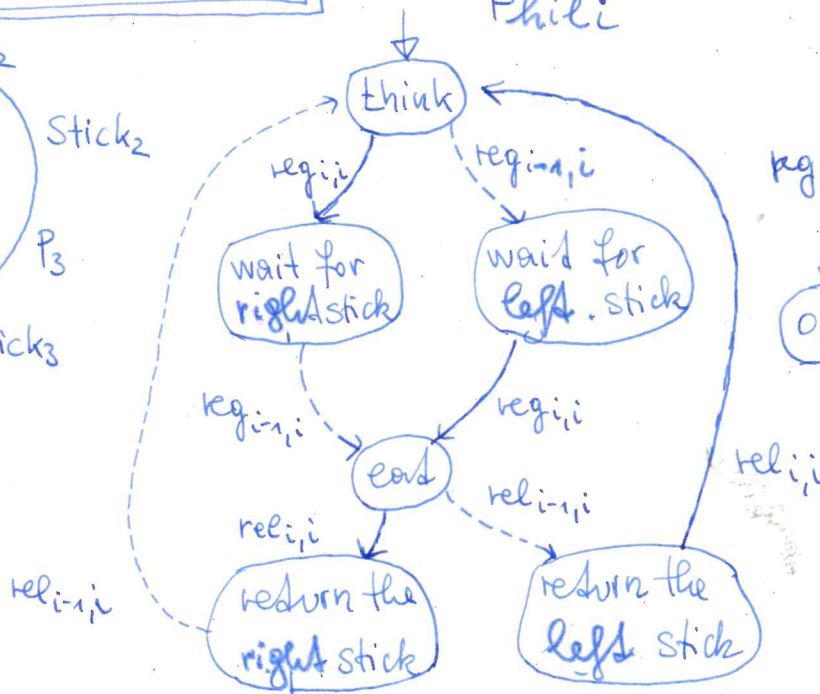 Phil i
think
Stick₂
req i,i
req i-1,i
P₃
wait for
right stick
wait for
left stick
ick₃
req i-1,i
req i,i
eat
rel i,i
rel i-1,i
rel i,i
rel i-1,i
return the
right stick
return the
left stick